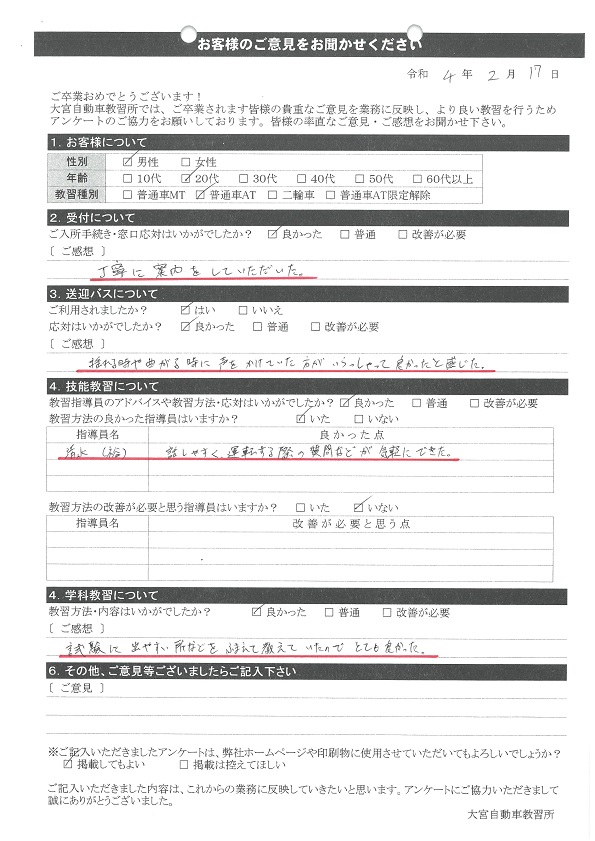 お客様のご意見をお聞かせください
令和 4 年 2 月 17 日
ご卒業おめでとうございます！
大宮自動車教習所では、ご卒業されます皆様の貴重なご意見を業務に反映し、より良い教習を行うため
アンケートのご協力をお願いしております。皆様の率直なご意見・ご感想をお聞かせ下さい。
1. お客様について
性別 ☑男性 □女性
年齢 □10代 ☑20代 □30代 □40代 □50代 □60代以上
教習種別 □普通車MT ☑普通車AT □二輪車 □普通車AT限定解除
2. 受付について
ご入所手続き・窓口応対はいかがでしたか？ ☑良かった □普通 □改善が必要
〔 ご感想 〕
丁寧に案内をしていただいた。
3. 送迎バスについて
ご利用されましたか？ ☑はい □いいえ
応対はいかがでしたか？ ☑良かった □普通 □改善が必要
〔 ご感想 〕
揺れる時や曲がる時に声をかけていた方がいらっしゃって良かったと感じた。
4. 技能教習について
教習指導員のアドバイスや教習方法・応対はいかがでしたか？ ☑良かった □普通 □改善が必要
教習方法の良かった指導員はいますか？ ☑いた □いない
指導員名 良かった点
清水 話しやすく運転する際の質問などが気軽にできた。
教習方法の改善が必要と思う指導員はいますか？ □いた ☑いない
指導員名 改善が必要と思う点
4. 学科教習について
教習方法・内容はいかがでしたか？ ☑良かった □普通 □改善が必要
〔 ご感想 〕
試験に出やすい所などをふまえて教えていたのでとても良かった。
6. その他、ご意見等ございましたらご記入下さい
〔 ご意見 〕
※ご記入いただきましたアンケートは、弊社ホームページや印刷物に使用させていただいてもよろしいでしょうか？
☑掲載してもよい □掲載は控えてほしい
ご記入いただきました内容は、これからの業務に反映していきたいと思います。アンケートにご協力いただきまして
誠にありがとうございました。
大宮自動車教習所